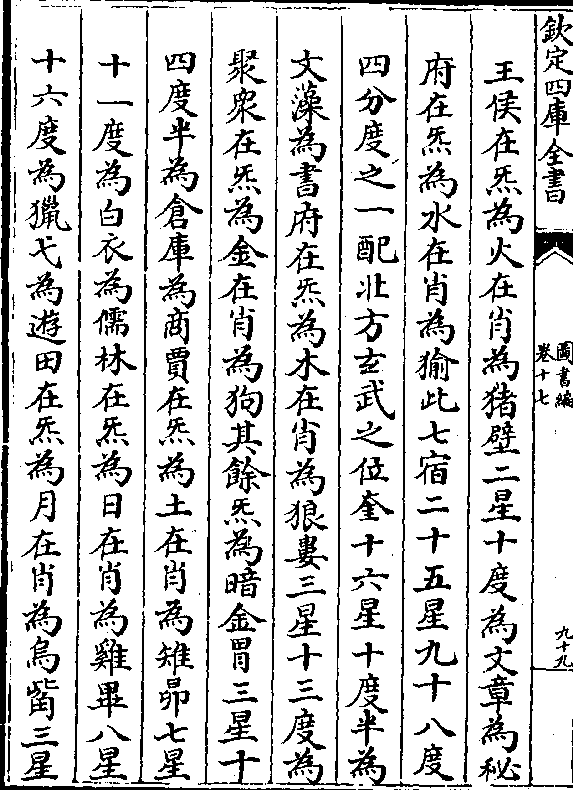 欽定四庫全書
圖書編
卷十七
九十九
王侯在炁為火在肖為猪壁二星十度為文章為秘
府在炁為水在肖為㺄此七宿二十五星九十八度
四分度之一配北方玄武之位奎十六星十度半為
文藻為書府在炁為木在肖為狼婁三星十三度為
聚衆在炁為金在肖為狗其餘炁為暗金胃三星十
四度半為倉庫為商賈在炁為土在肖為雉昴七星
十一度為白衣為儒林在炁為日在肖為雞畢八星
十六度為獵弋為遊田在炁為月在肖為烏觜三星